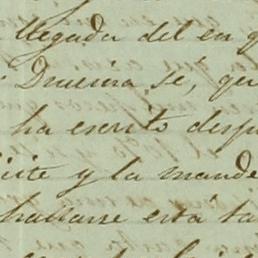 llegada del en q
Drucina se, que
ha escrito desp
ite y la mande
hallarse está ta